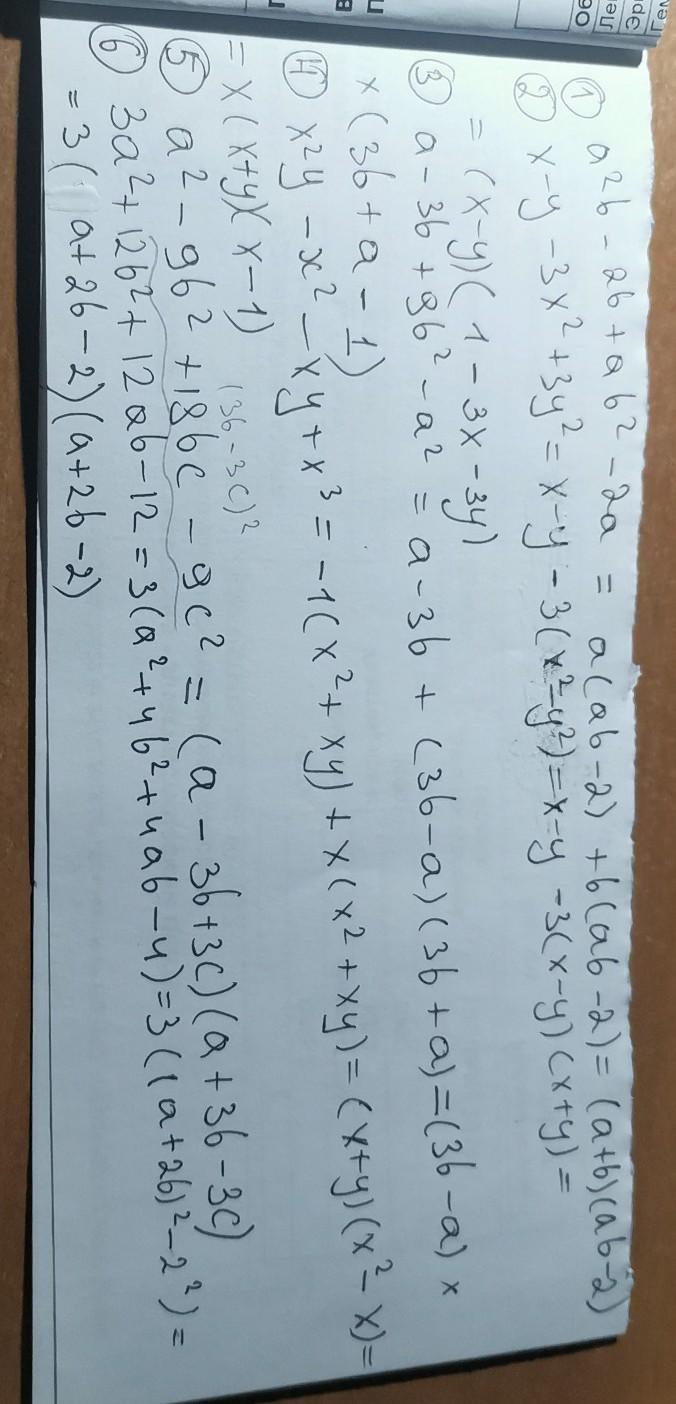 ① a²b - 2b + ab² - 2a = a(ab-2) + b(ab-2) = (a+b)(ab-2)
② x-y - 3x² + 3y² = x-y - 3(x²-y²) = x-y - 3(x-y)(x+y) =
= (x-y)(1 - 3x - 3y)
③ a - 3b + 9b² - a² = a - 3b + (3b-a)(3b+a) = (3b-a) ×
× (3b + a - 1)
④ x²y - x² - xy + x³ = -1(x² + xy) + x(x² + xy) = (x+y)(x² - x) =
= x(x+y)(x-1)
(3b-3c)²
⑤ a² - 9b² + 18bc - 9c² = (a - 3b+3c)(a + 3b - 3c)
⑥ 3a² + 12b² + 12ab - 12 = 3(a² + 4b² + 4ab - 4) = 3((a+2b)² - 2²) =
= 3(a+2b-2)(a+2b-2)
Об
Ле
Эр
Гем